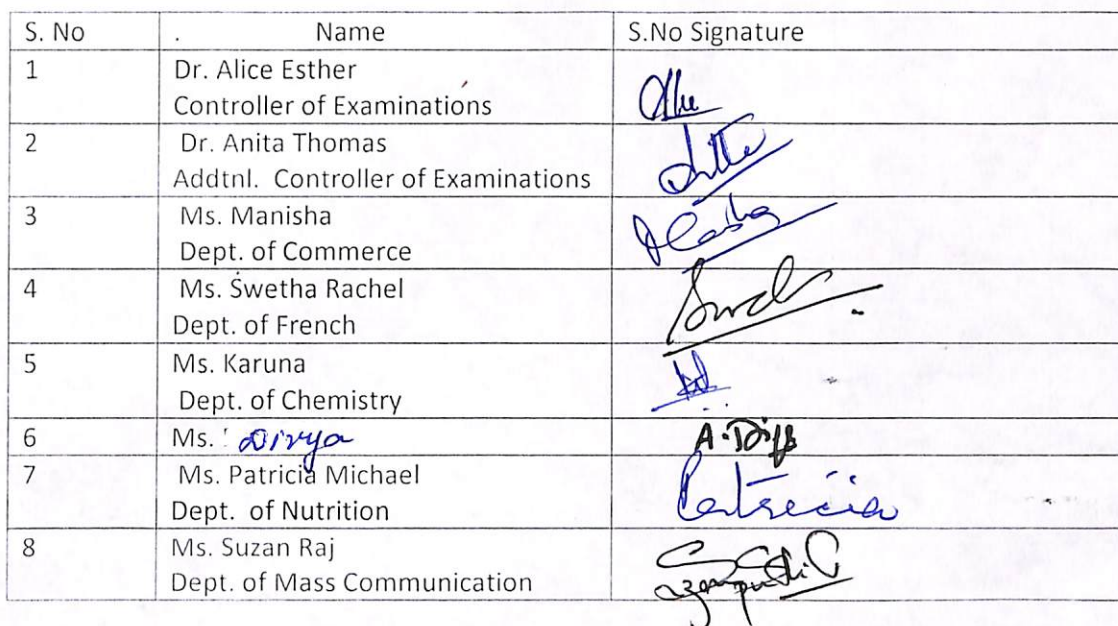 S. No . Name S.No Signature
1 Dr. Alice Esther
Controller of Examinations
2 Dr. Anita Thomas
Addtnl. Controller of Examinations
3 Ms. Manisha
Dept. of Commerce
4 Ms. Swetha Rachel
Dept. of French
5 Ms. Karuna
Dept. of Chemistry
6 Ms. Divya
7 Ms. Patricia Michael Patricia
Dept. of Nutrition
8 Ms. Suzan Raj
Dept. of Mass Communication